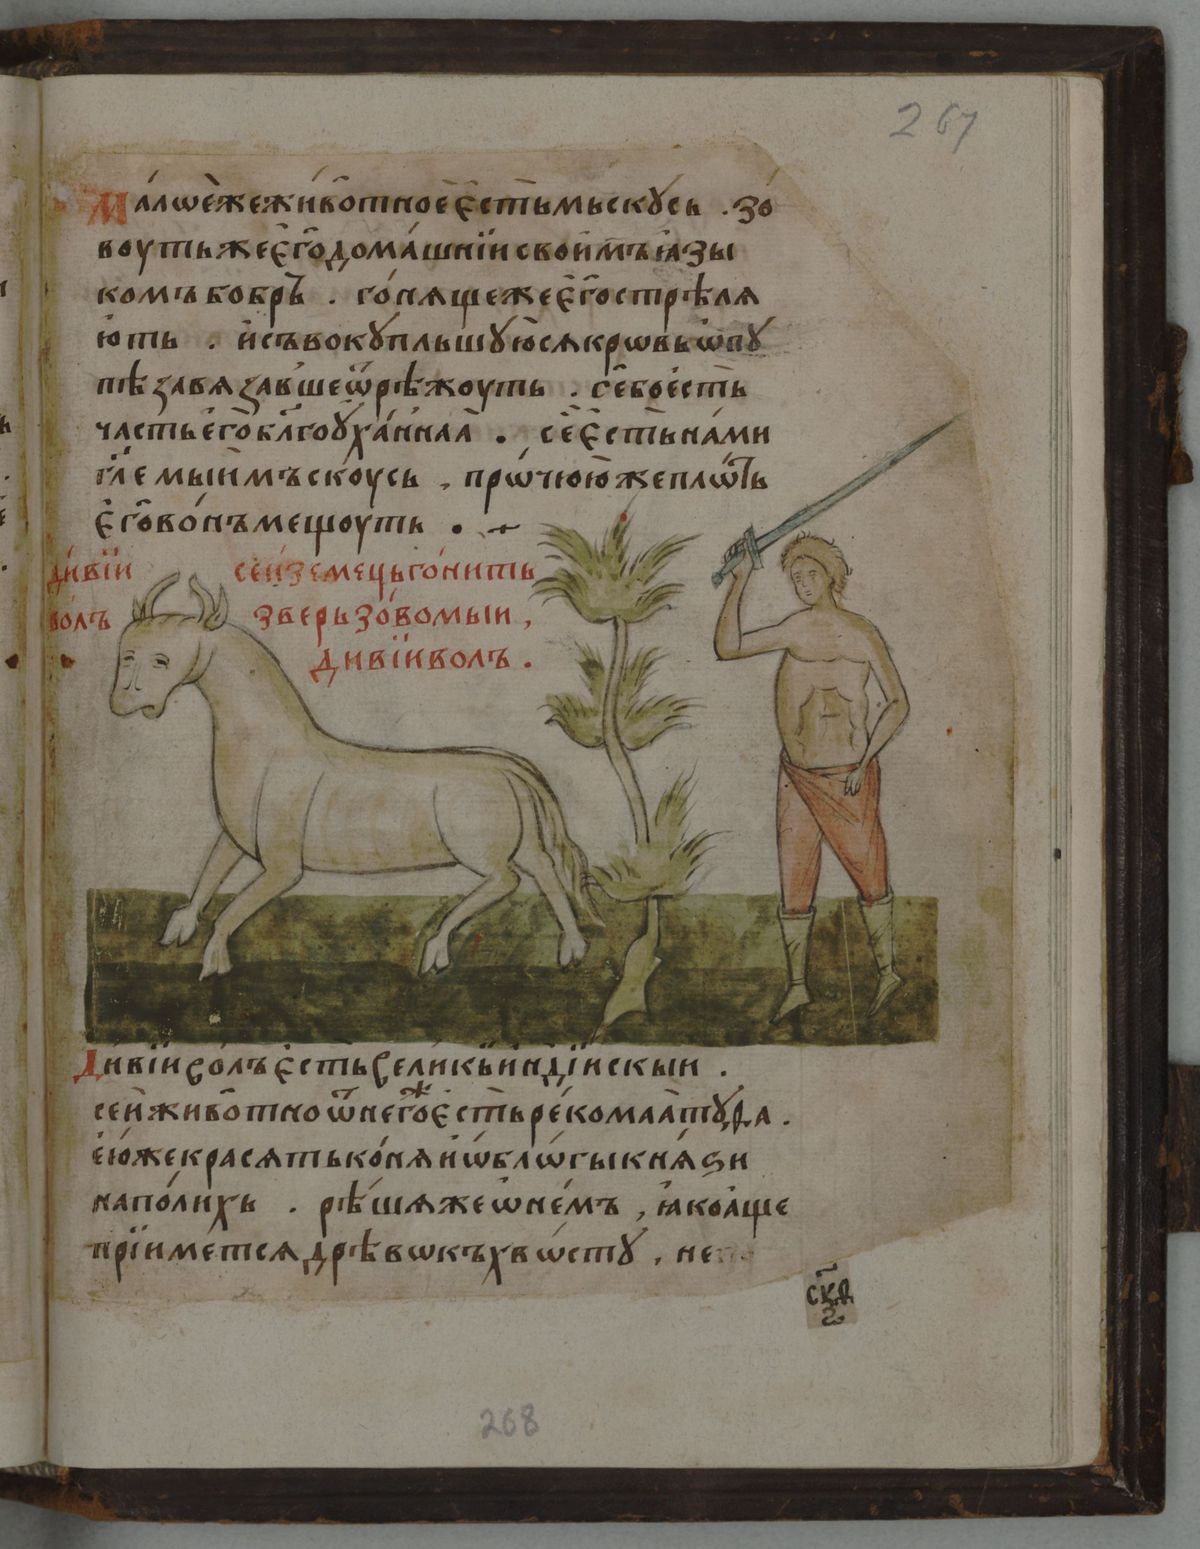 267
Мало́еже живо́тное є҆́сть мьскусь . зо́
воуть же є҆го̀ дома́шнїи свои́мъ ꙗ҆зы
комъ бобръ̀ . го́няще же є҆го̀ стрѣля
ю́ть . и҆ съвокупльшуюся крѡвь ѿ пу
пѣ завяза́вше ѿрѣжоуть . се́ бо е́сть
часть є҆го̀ бл҃гоуха́ннаа . се́ є҆́сть на́ми
гл҃емыи мъскоусь , прѡ́чюю же плѡ́ть
є҆го̀ во́нъ мещоуть .
ди́вїи сеи́ земець го́нить
волъ звѣрь зо́вомыи ,
дивїи волъ .
Ди́вїи во́лъ є҆́сть вели́кыи и҆ндїискыи .
сеи́ живо́тно ѿ него́ же є҆́сть ре́комаа ту́фа .
е́ю́же красять ко́ня и҆ ѡ҆блѡгы кня́ѕи
на по́лихъ . рѣ́шя же ѡ҆ не́мъ , ꙗ҆ко а҆́ще
прїиме́тся дрѣвѡ къ хвѡ́сту , не
скд
268